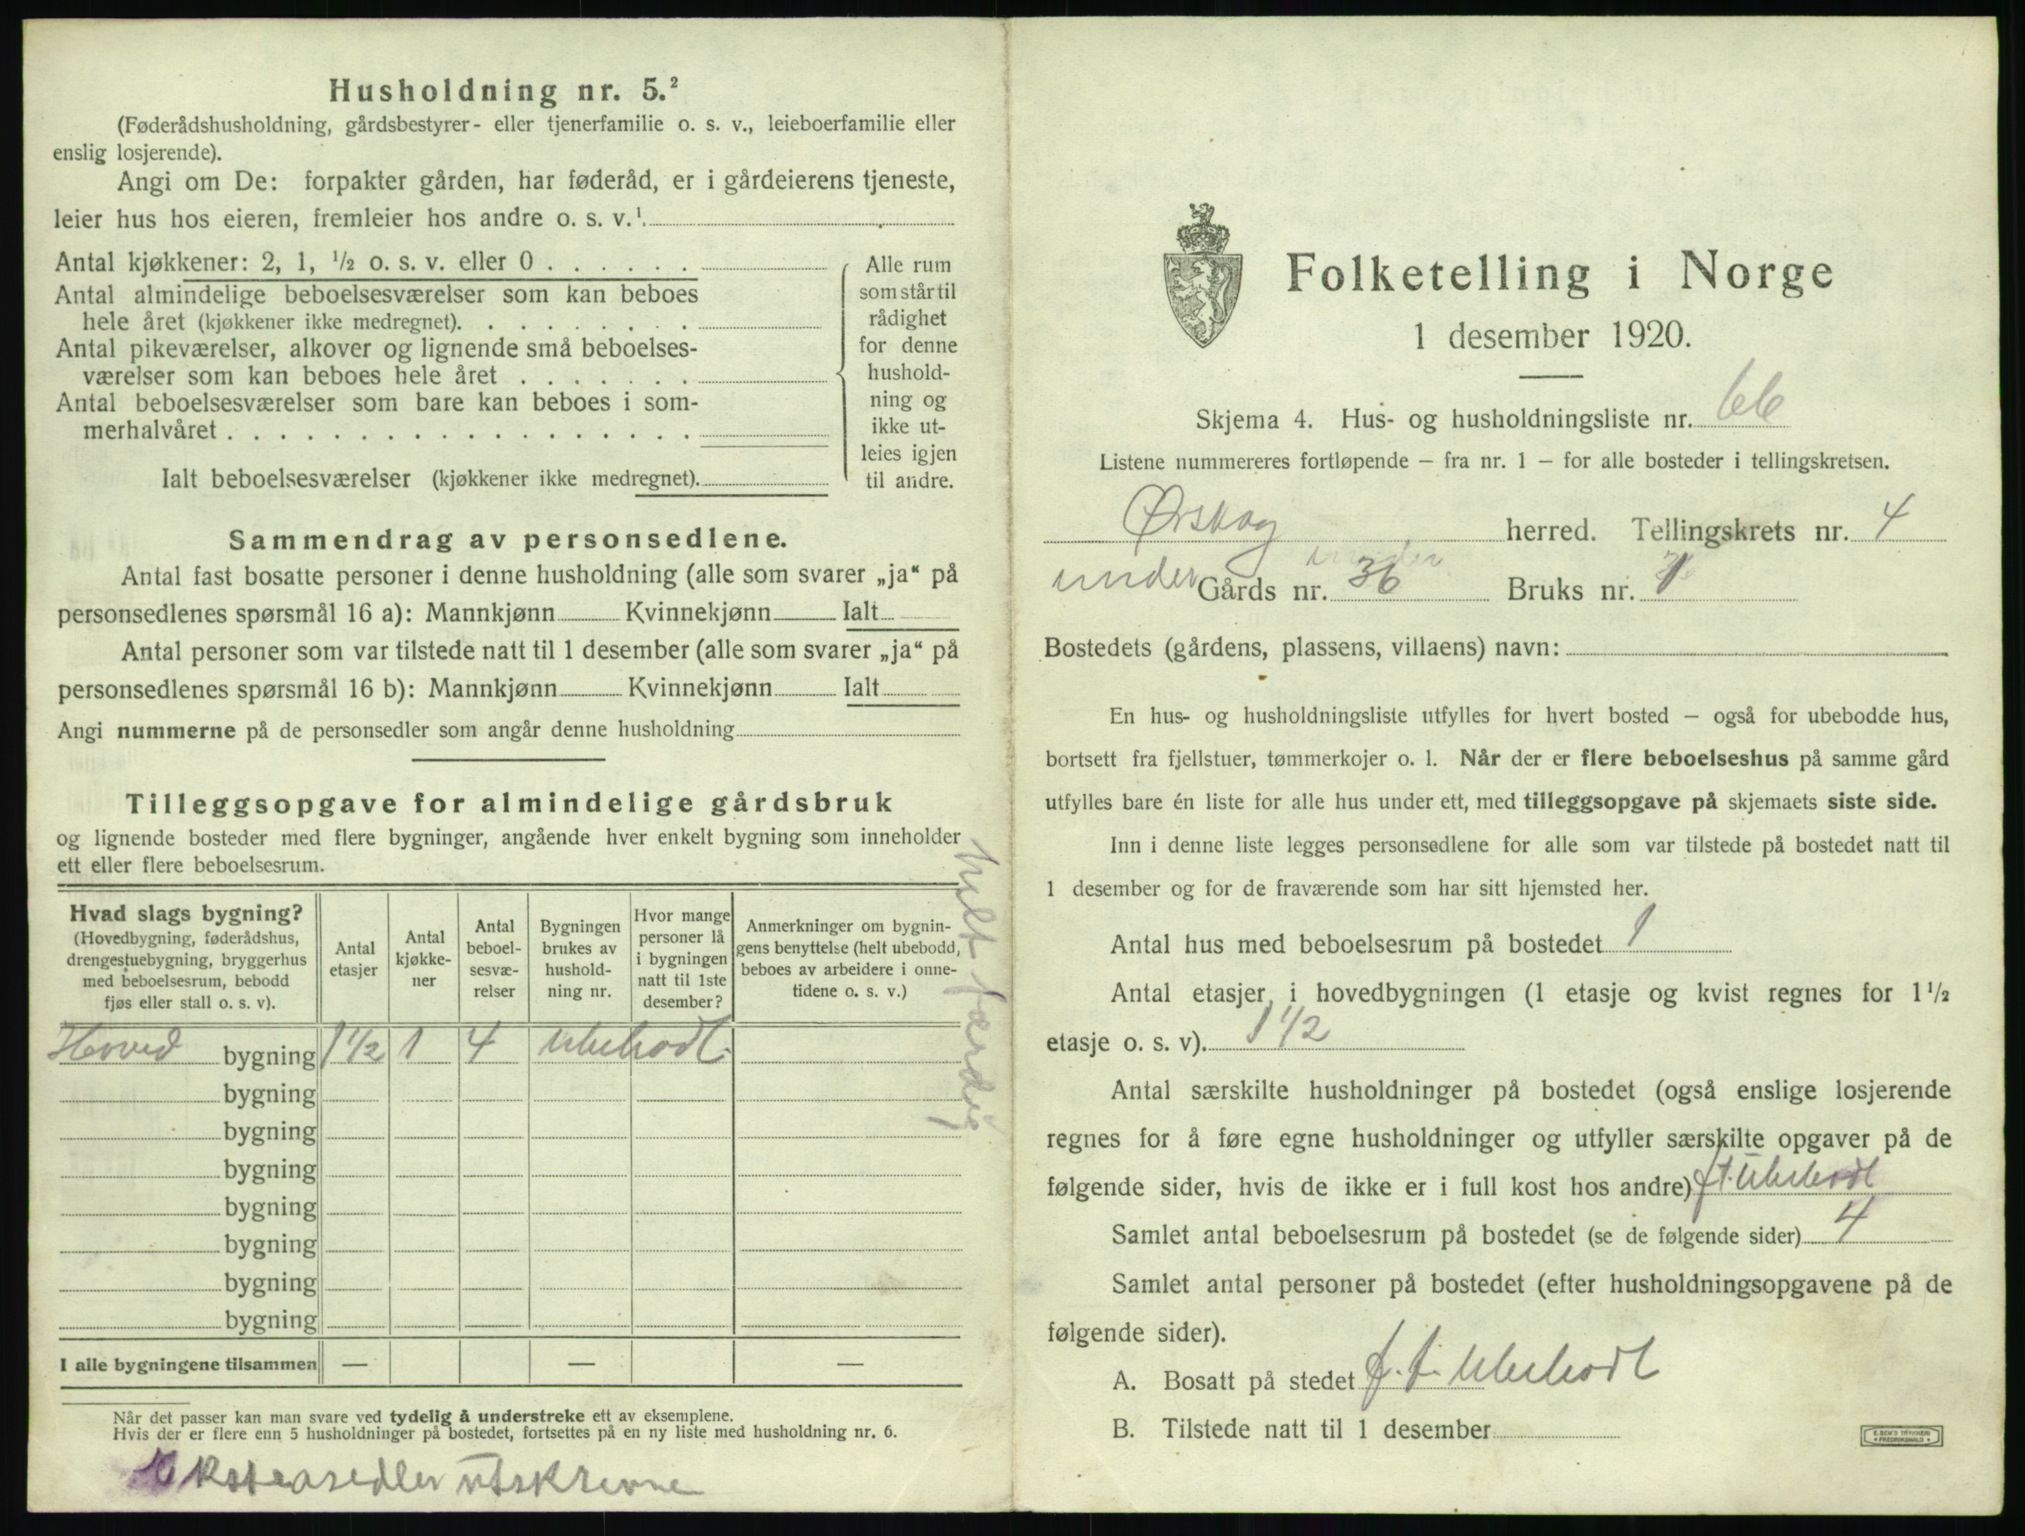 Husholdning nr. 5.²
(Føderådshusholdning, gårdsbestyrer- eller tjenerfamilie o. s. v., leieboerfamilie eller
enslig losjerende).
Angi om De: forpakter gården, har føderåd, er i gårdeierens tjeneste,
leier hus hos eieren, fremleier hos andre o. s. v.¹
Antal kjøkkener: 2, 1, ½ o. s. v. eller 0
Antal almindelige beboelsesværelser som kan beboes
hele året (kjøkkener ikke medregnet).
Antal pikeværelser, alkover og lignende små beboelses-
værelser som kan beboes hele året
Antal beboelsesværelser som bare kan beboes i som-
merhalvåret
Ialt beboelsesværelser (kjøkkener ikke medregnet).
Alle rum
som står til
rådighet
for denne
hushold-
ning og
ikke ut-
leies igjen
til andre.
Sammendrag av personsedlene.
Antal fast bosatte personer i denne husholdning (alle som svarer „ja“ på
personsedlenes spørsmål 16 a): Mannkjønn Kvinnekjønn Ialt
Antal personer som var tilstede natt til 1 desember (alle som svarer „ja“ på
personsedlenes spørsmål 16 b): Mannkjønn Kvinnekjønn Ialt
Angi nummerne på de personsedler som angår denne husholdning
Tilleggsopgave for almindelige gårdsbruk
og lignende bosteder med flere bygninger, angående hver enkelt bygning som inneholder
ett eller flere beboelsesrum.
Hvad slags bygning?
(Hovedbygning, føderådshus,
drengestuebygning, bryggerhus
med beboelsesrum, bebodd
fjøs eller stall o. s. v).
Antal
etasjer
Antal
kjøkke-
ner
Antal
beboel-
sesvæ-
relser
Bygningen
brukes av
hushold-
ning nr.
Hvor mange
personer lå
i bygningen
natt til 1ste
desember?
Anmerkninger om bygnin-
gens benyttelse (helt ubebodd,
beboes av arbeidere i onne-
tidene o. s. v.)
Hoved bygning 1½ 1 4 Ubebodt
bygning
bygning
bygning
bygning
bygning
bygning
bygning
I alle bygningene tilsammen — — —
færdig
Når det passer kan man svare ved tydelig å understreke ett av eksemplene.
Hvis der er flere enn 5 husholdninger på bostedet, fortsettes på en ny liste med husholdning nr. 6.
utskrevne
Folketelling i Norge
1 desember 1920.
Skjema 4. Hus- og husholdningsliste nr. 66
Listene nummereres fortløpende – fra nr. 1 – for alle bosteder i tellingskretsen.
Ørskog herred. Tellingskrets nr. 4
under Gårds nr. 36 Bruks nr. 1
Bostedets (gårdens, plassens, villaens) navn:
En hus- og husholdningsliste utfylles for hvert bosted – også for ubebodde hus,
bortsett fra fjellstuer, tømmerkojer o. l. Når der er flere beboelseshus på samme gård
utfylles bare én liste for alle hus under ett, med tilleggsopgave på skjemaets siste side.
Inn i denne liste legges personsedlene for alle som var tilstede på bostedet natt til
1 desember og for de fraværende som har sitt hjemsted her.
Antal hus med beboelsesrum på bostedet 1
Antal etasjer i hovedbygningen (1 etasje og kvist regnes for 1½
etasje o. s. v). 1½
Antal særskilte husholdninger på bostedet (også enslige losjerende
regnes for å føre egne husholdninger og utfyller særskilte opgaver på de
følgende sider, hvis de ikke er i full kost hos andre) f.t. Ubebodt
Samlet antal beboelsesrum på bostedet (se de følgende sider) 4
Samlet antal personer på bostedet (efter husholdningsopgavene på de
følgende sider).
A. Bosatt på stedet f. t. Ubebodt
B. Tilstede natt til 1 desember